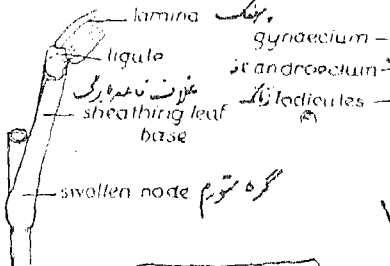 lamina پهنک
ligule
غلاف قاعده برگ
sheathing leaf
base
swollen node گره متورم
gynaecium
androecium
lodicules